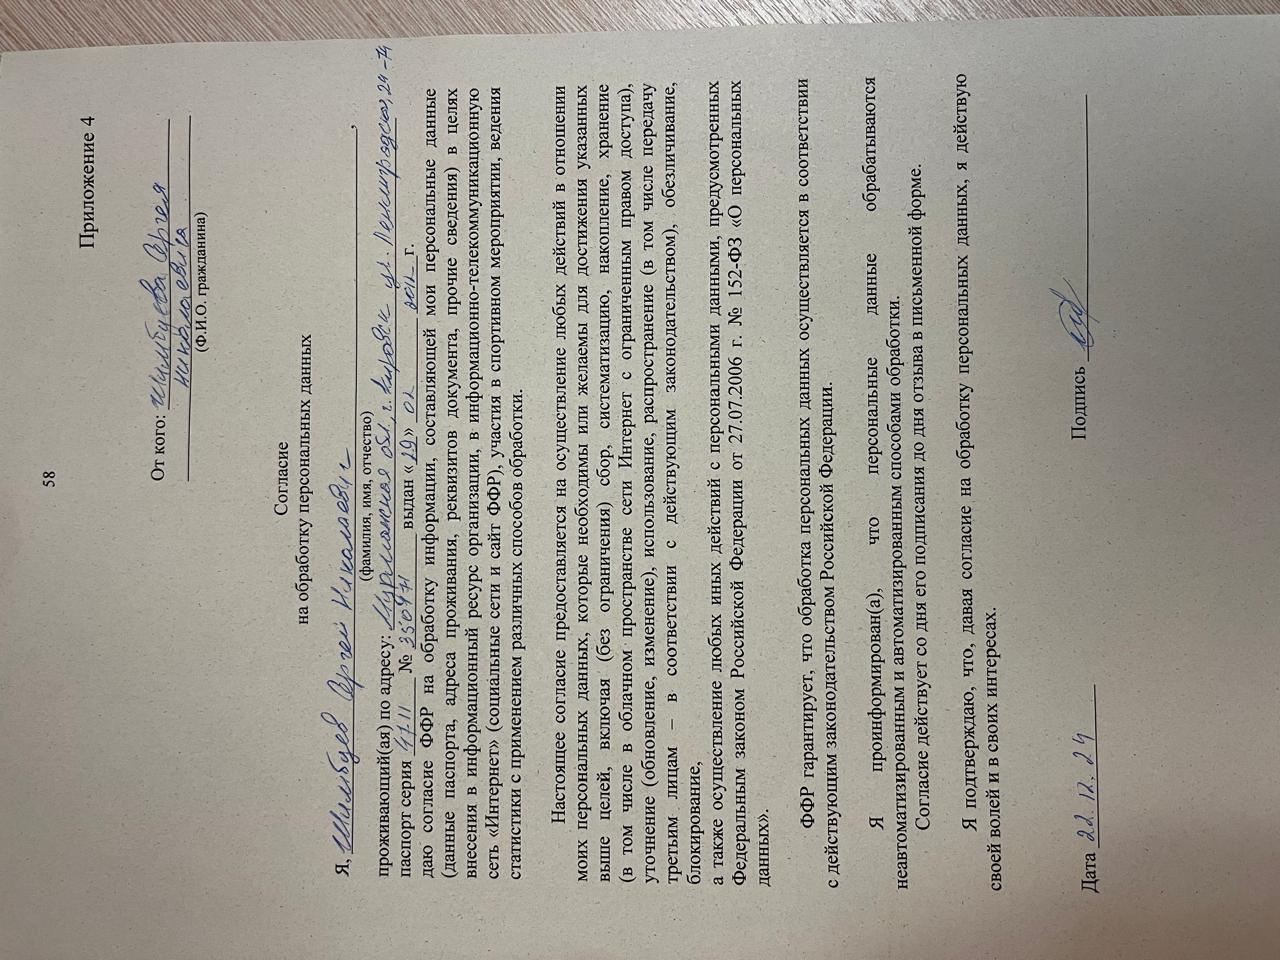 58
Приложение 4
От кого: Шимбуева Сергея
Николаевича
(Ф.И.О. гражданина)
Согласие
на обработку персональных данных
Я, Шимбуев Сергей Николаевич,
(фамилия, имя, отчество)
проживающий(ая) по адресу: Мурманская обл., г. Кировск ул. Ленинградская, 24-74
паспорт серия 47 11 № 350471 выдан «29» 02 2012 г.
даю согласие ФФР на обработку информации, составляющей мои персональные данные
(данные паспорта, адреса проживания, реквизитов документа, прочие сведения) в целях
внесения в информационный ресурс организации, в информационно-телекоммуникационную
сеть «Интернет» (социальные сети и сайт ФФР), участия в спортивном мероприятии, ведения
статистики с применением различных способов обработки.
Настоящее согласие предоставляется на осуществление любых действий в отношении
моих персональных данных, которые необходимы или желаемы для достижения указанных
выше целей, включая (без ограничения) сбор, систематизацию, накопление, хранение
(в том числе в облачном пространстве сети Интернет с ограниченным правом доступа),
уточнение (обновление, изменение), использование, распространение (в том числе передачу
третьим лицам – в соответствии с действующим законодательством), обезличивание,
блокирование,
а также осуществление любых иных действий с персональными данными, предусмотренных
Федеральным законом Российской Федерации от 27.07.2006 г. № 152-ФЗ «О персональных
данных».
ФФР гарантирует, что обработка персональных данных осуществляется в соответствии
с действующим законодательством Российской Федерации.
Я проинформирован(а), что персональные данные обрабатываются
неавтоматизированным и автоматизированным способами обработки.
Согласие действует со дня его подписания до дня отзыва в письменной форме.
Я подтверждаю, что, давая согласие на обработку персональных данных, я действую
своей волей и в своих интересах.
Дата 22.12.24 Подпись